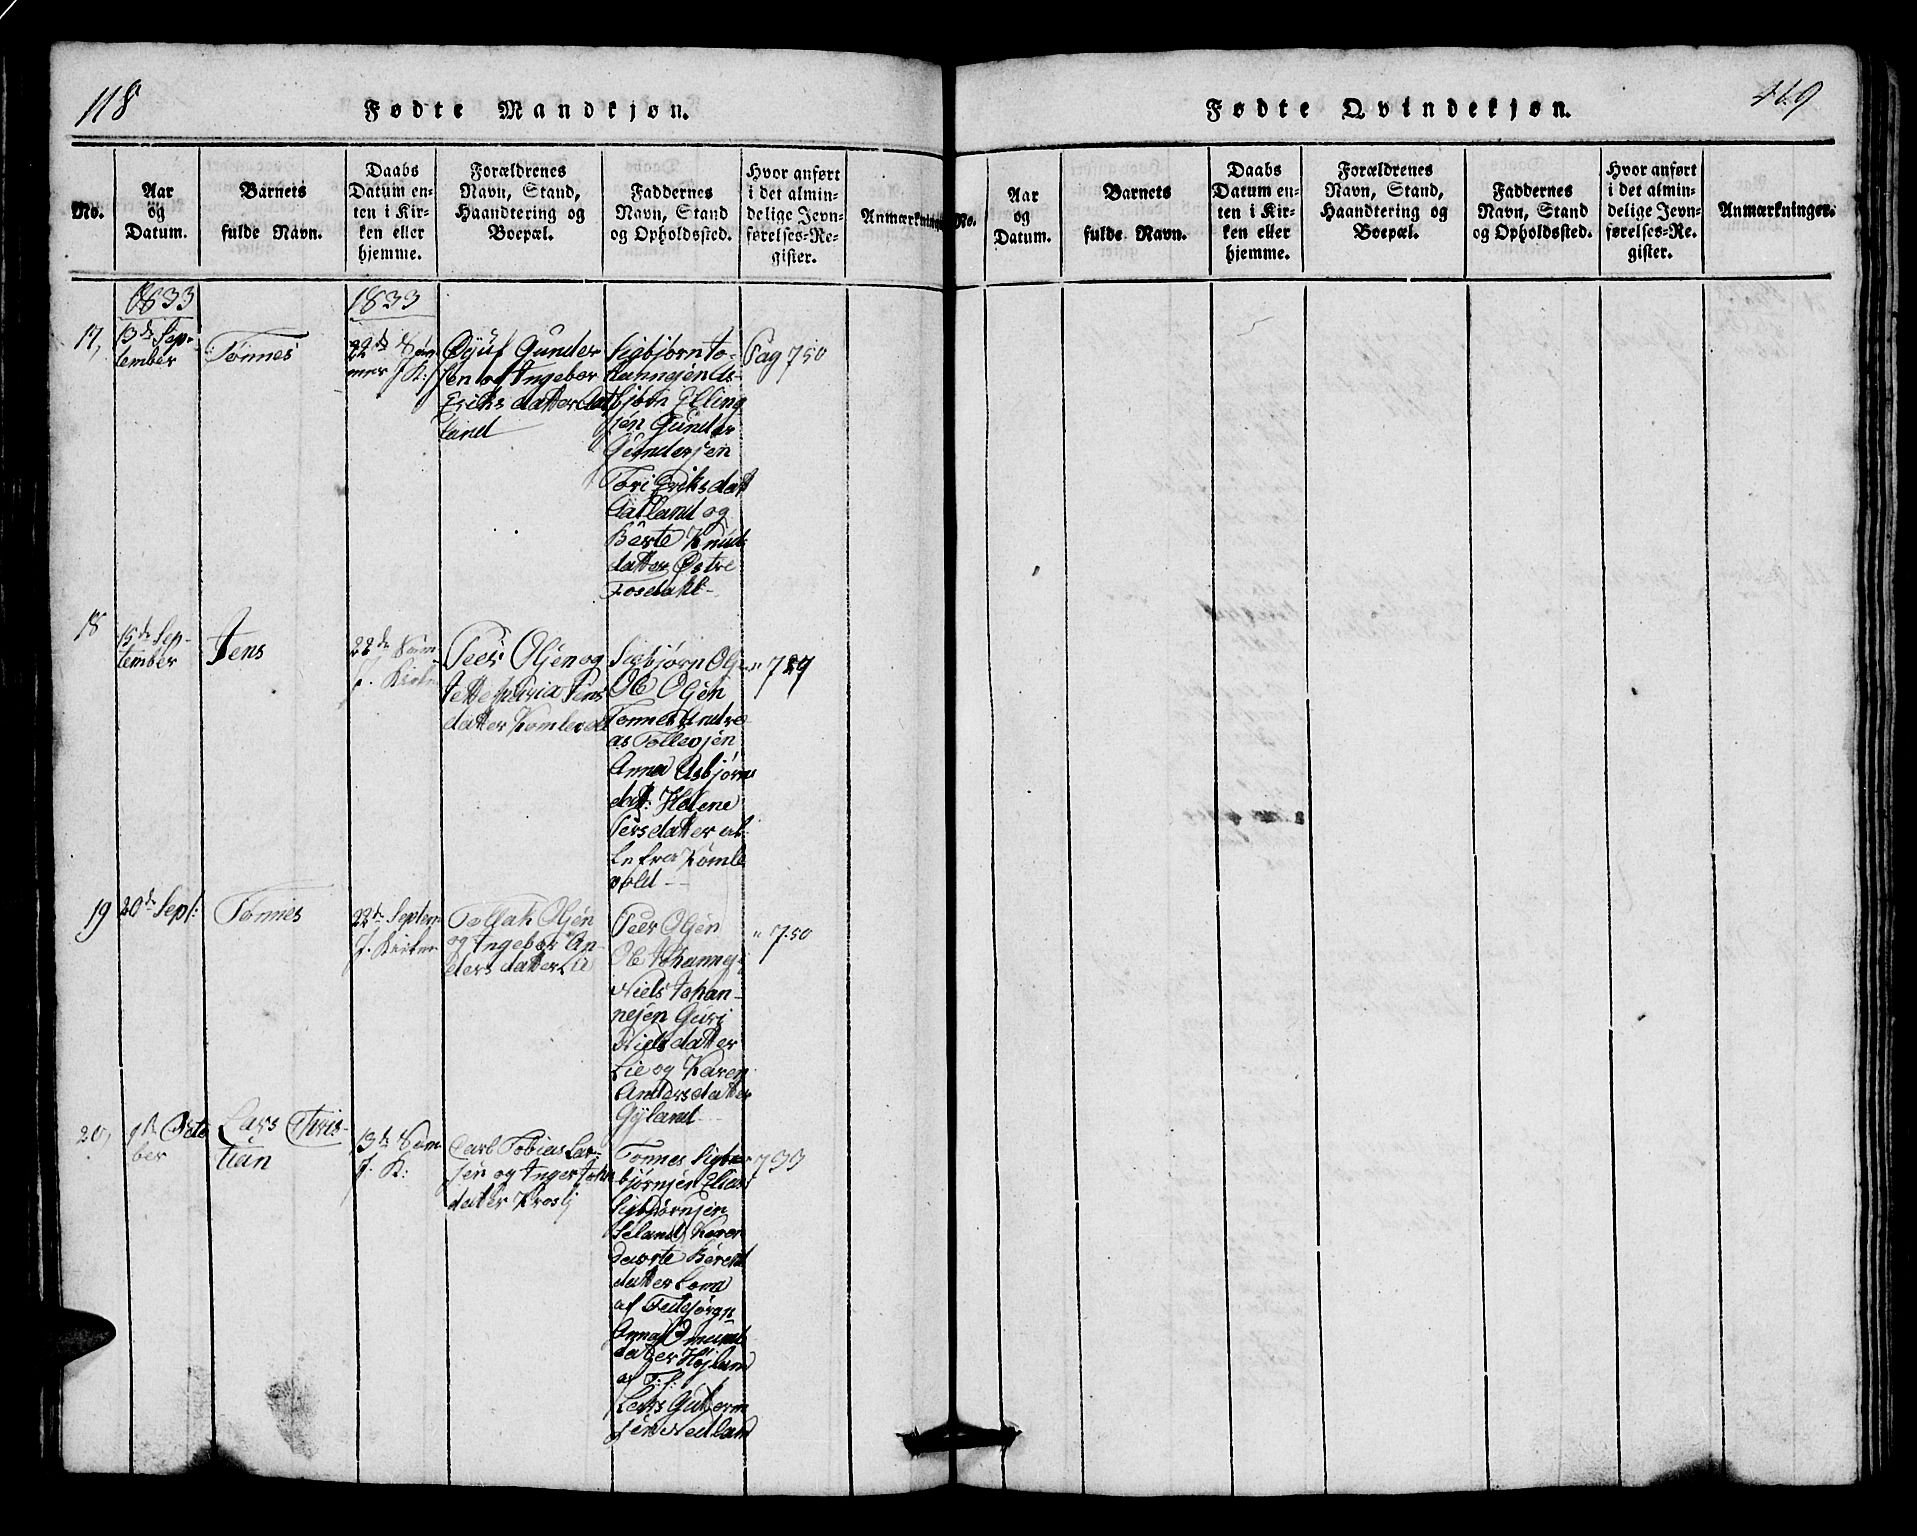 118
Fødte Mandkjøn.
No.
Aar
og
Datum.
Barnets
fulde Navn.
Daabs
Datum en-
ten i Kir-
ken eller
hjemme.
Forældrenes
Navn, Stand,
Haandtering og
Boepæl.
Faddernes
Navn, Stand
og Opholdssted.
Hvor anført
i det almin-
delige Jevn-
førelses-Re-
gister.
Anmærkning
1833
1833
17,
13de Sep-
tember
Tønnes
22de
K:
Gunder
sen og Ingebor
Eriks datter Aat
land
Sigbjørn To-
As-
bjørn Elling
sen Gunder
Gundersen
Tori Eriksdatt
Aatland og
Berte Knuds
datter Østre
Fosdahl
Pag 750
18
15de Sep-
tember
Jens
22de
J. Kirken
Peer Olsen og
Jens
datter
Sigbjørn Ols
Ole Olsen
Tønnes Andre
as Tollevsen
Anna Asbjørns
datt: Helene
Pers datter al-
le fra Komle
vold
" 729
19
20de Sept:
Tønnes
22de Septem
J. Kirken
Tollak Olsen
og Ingebor An-
ders datter Lie
Peer Olsen
Ole Johannes
Niels Johan-
nesen Guri
Niels datter
Lie og Karen
Anders datter
Gyland
" 750
20,
9de Octo
ber
Lars Chris-
tian
13de
J. K:
Carl Tobias Lar-
sen og Inger John
datter
Tønnes Sig-
bjørnsen Elias
Sigbjørnsen
Seland, Karen
Dorte Berent
datter
af
Anna Omund
datter Højland
af F: S:
Lars Guttorm
sen Nedland
733
119
Fødte Qvindekjøn.
No.
Aar
og
Datum.
Barnets
fulde Navn.
Daabs
Datum en-
ten i Kir-
ken eller
hjemme.
Forældrenes
Navn, Stand,
Haandtering og
Boepæl.
Faddernes
Navn, Stand
og Opholdssted.
Hvor anført
i det almin-
delige Jevn-
førelses-Re-
gister.
Anmærkninger.